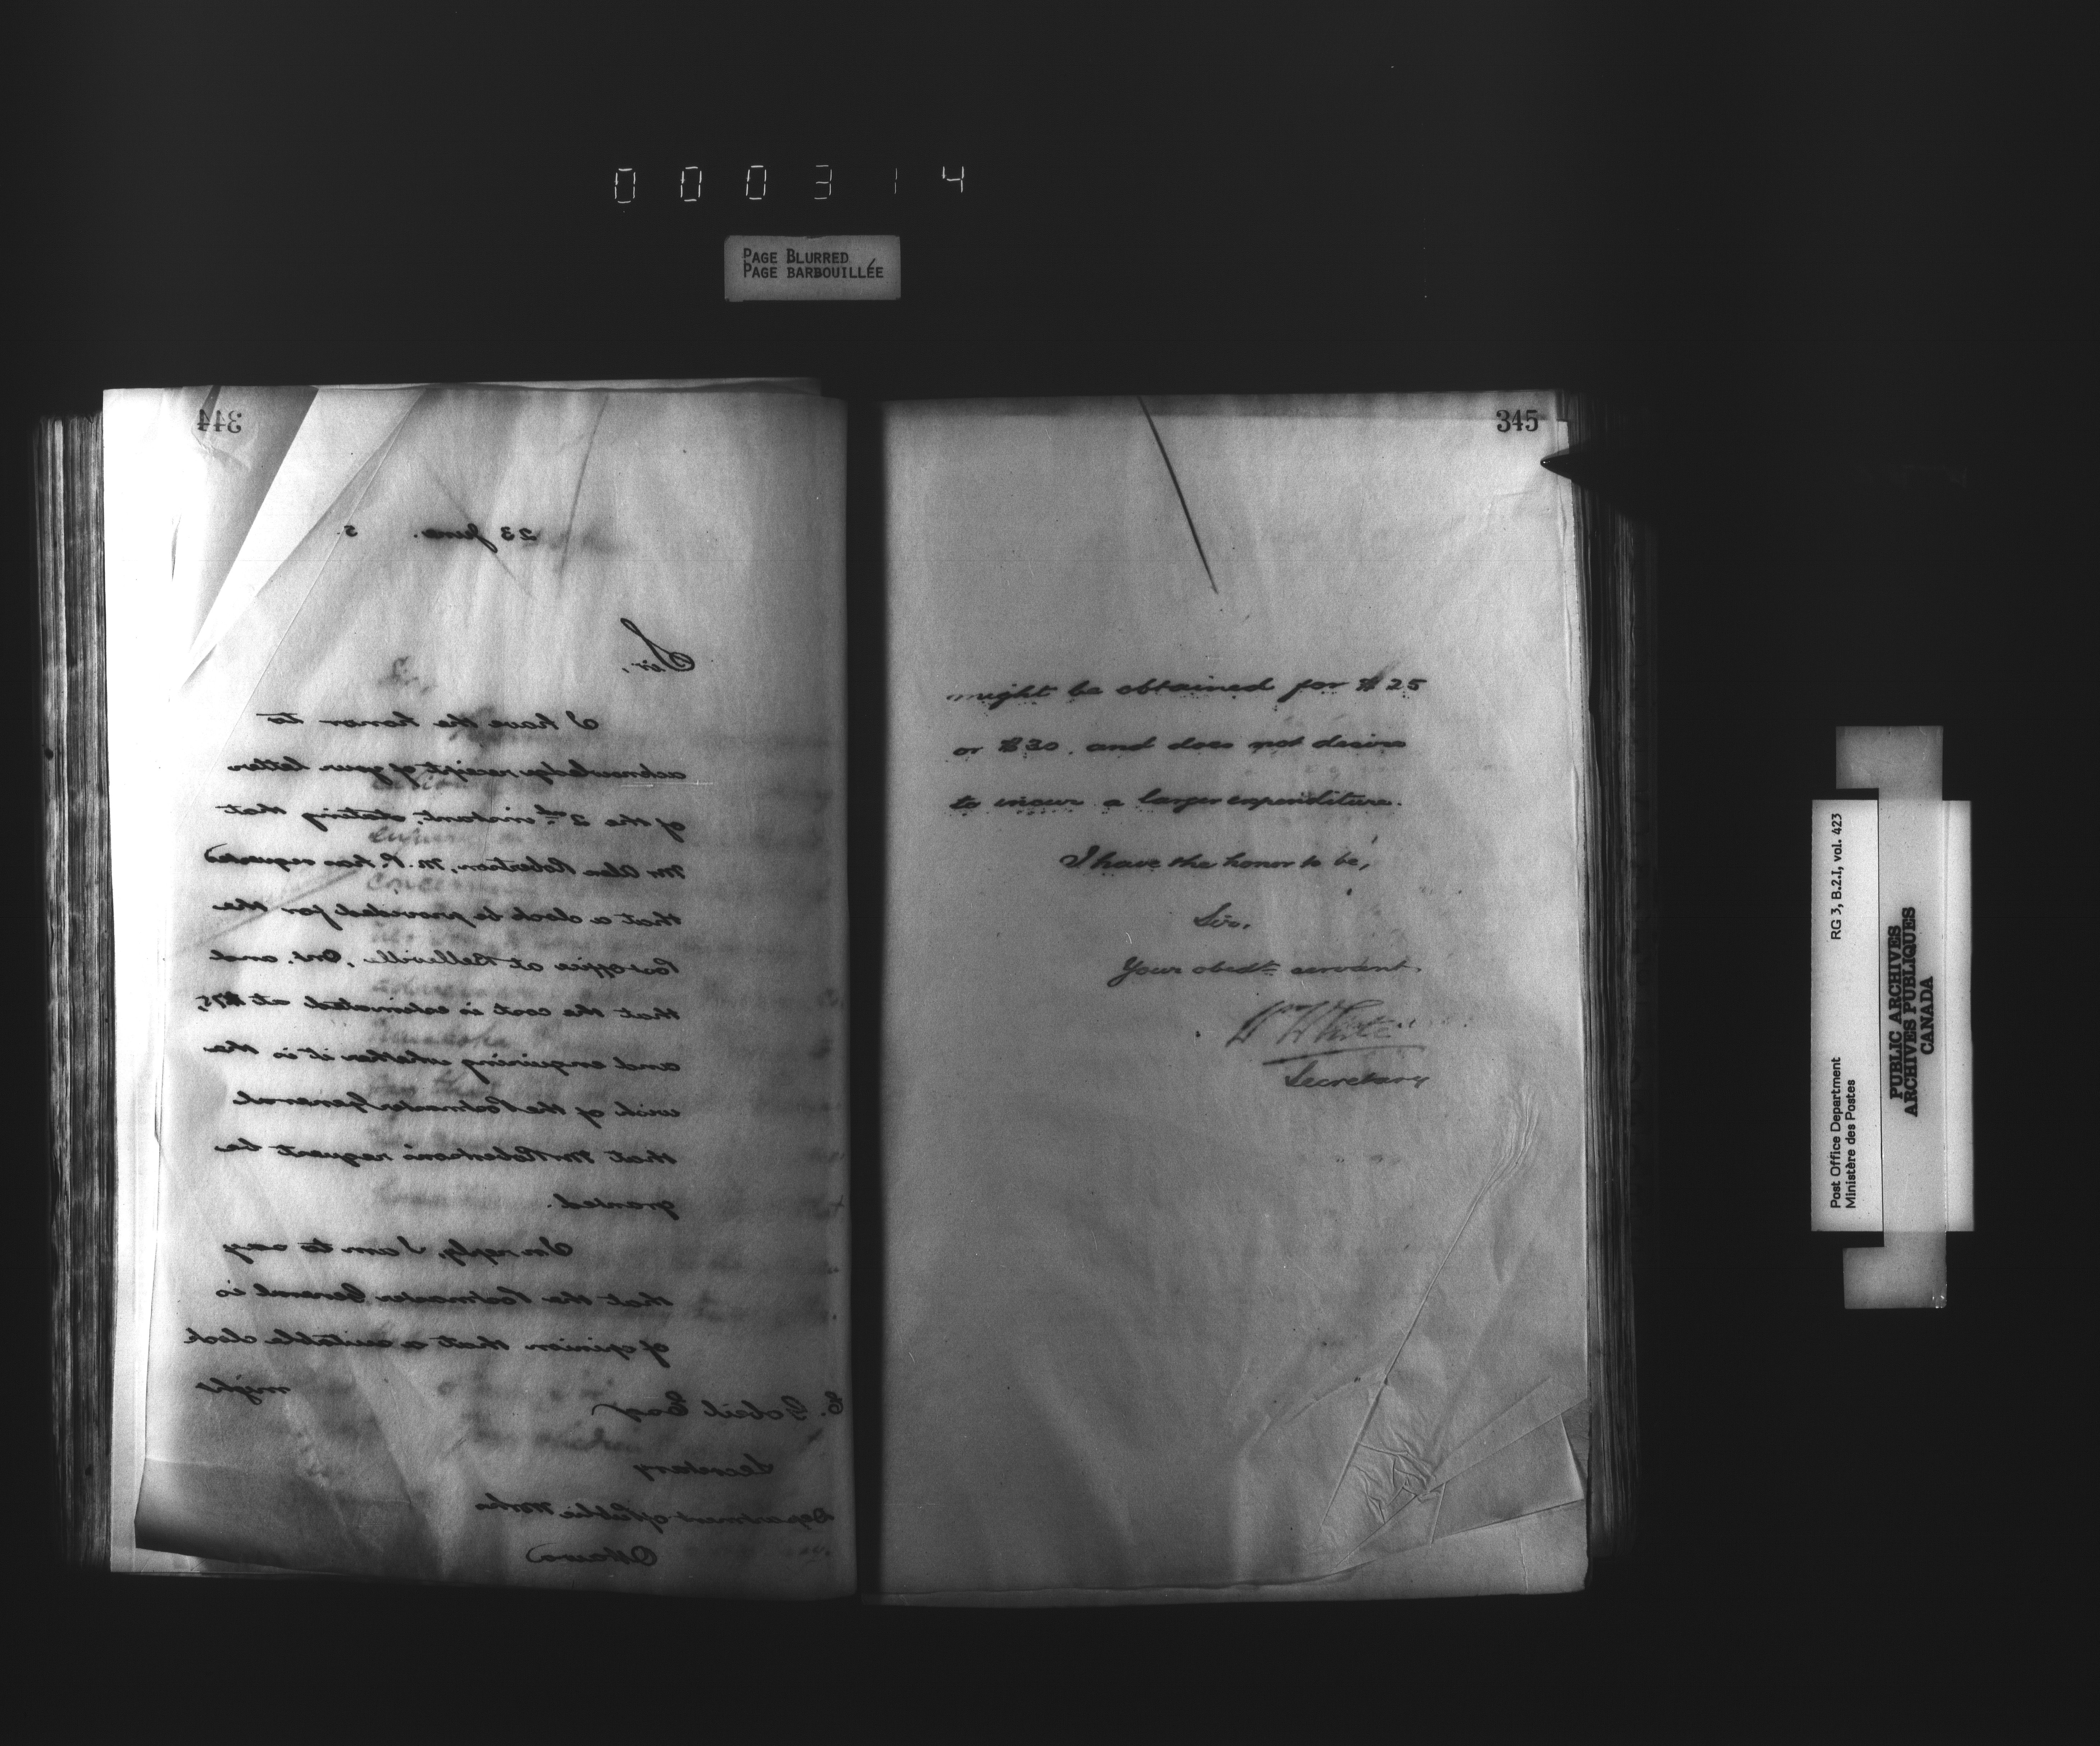 000314
PAGE BLURRED
PAGE BARBOUILLÉE
344
23 June 5
Sir,
I have the honor to
acknowledge receipt of your letter
of the 2nd instant, stating that
Mr Alex Robertson, M.P. has requested
that a clock be provided for the
Post office at Belleville, Ont. and
that the cost is estimated at $75,
and enquiring whether it is the
wish of the Postmaster General
that Mr Robertson's request be
granted.
In reply, I am to say
that the Postmaster General is
of opinion that a suitable clock
might
E. Gobeil Esqr
Secretary
Department of Public Works
Ottawa
345
might be obtained for $25
or $30, and does not desire
to incur a larger expenditure.
I have the honor to be,
Sir,
Your obedt servant.
Wm White
Secretary
Post Office Department
Ministère des Postes
RG 3, B.2.I, vol. 423
PUBLIC ARCHIVES
ARCHIVES PUBLIQUES
CANADA